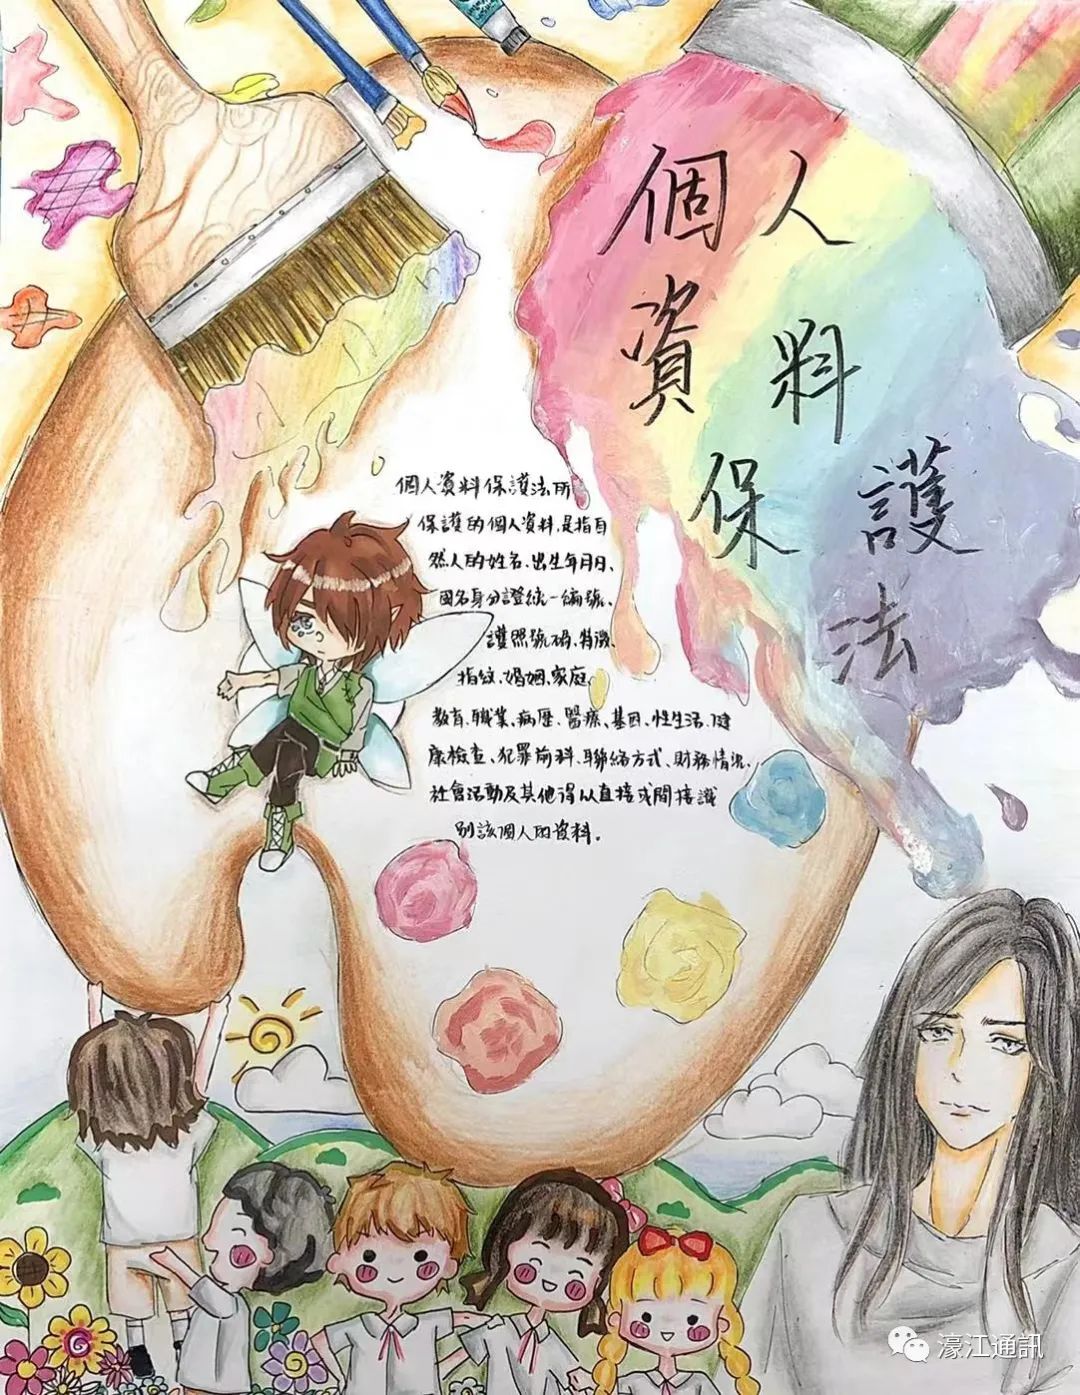 個人
資料
保護
法
個人資料保護法所
保護的個人資料,是指自
然人的姓名、出生年月日、
國名身分證統一編號、
護照號碼、特徵、
指紋、婚姻、家庭、
教育、職業、病歷、醫療、基因、性生活、健
康檢查、犯罪前科、聯絡方式、財務情況、
社會活動及其他得以直接或間接識
別該個人的資料。
濠江通訊